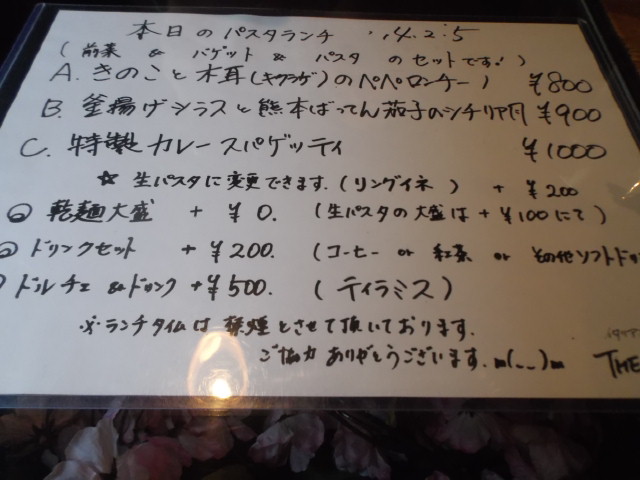 本日のパスタランチ '14.2.5
(前菜 & バゲット & パスタ のセットです!)
A. きのこと木耳(キクラゲ)のペペロンチーノ ¥800
B. 釜揚げシラスと熊本ばってん茄子のシチリア風 ¥900
C. 特製カレースパゲッティ ¥1000
☆ 生パスタに変更できます.(リングイネ) + ¥200
乾麺大盛 + ¥0. (生パスタの大盛は+¥100にて)
ドリンクセット +¥200. (コーヒー or 紅茶 or その他ソフトドリ
ドルチェ&ドリンク +¥500. (ティラミス)
※ランチタイムは禁煙とさせて頂いております.
ご協力ありがとうございます.m(_ _)m
イタリア
THE